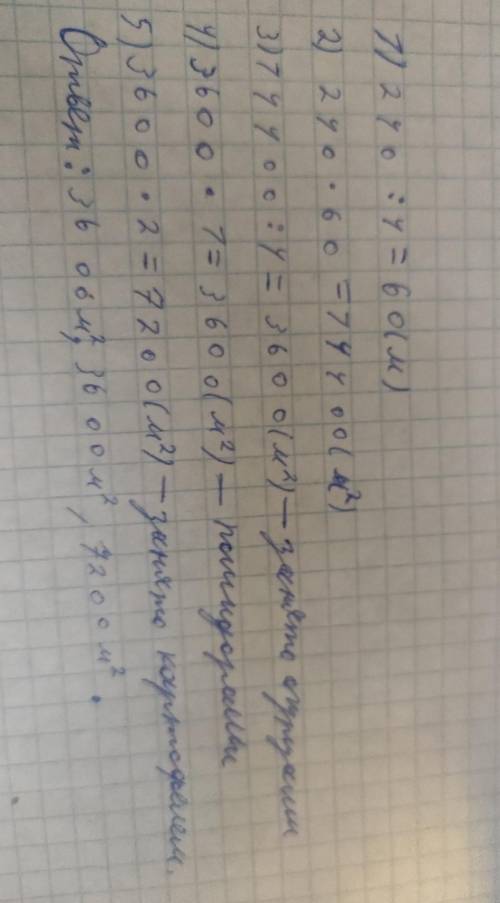 1) 240 : 4 = 60 (м)
2) 240 · 60 = 14400 (м²)
3) 14400 : 4 = 3600 (м²) – занято огурцами
4) 3600 · 1 = 3600 (м²) – помидорами
5) 3600 · 2 = 7200 (м²) – занято картофелем.
Ответ: 3600м², 3600м², 7200м².